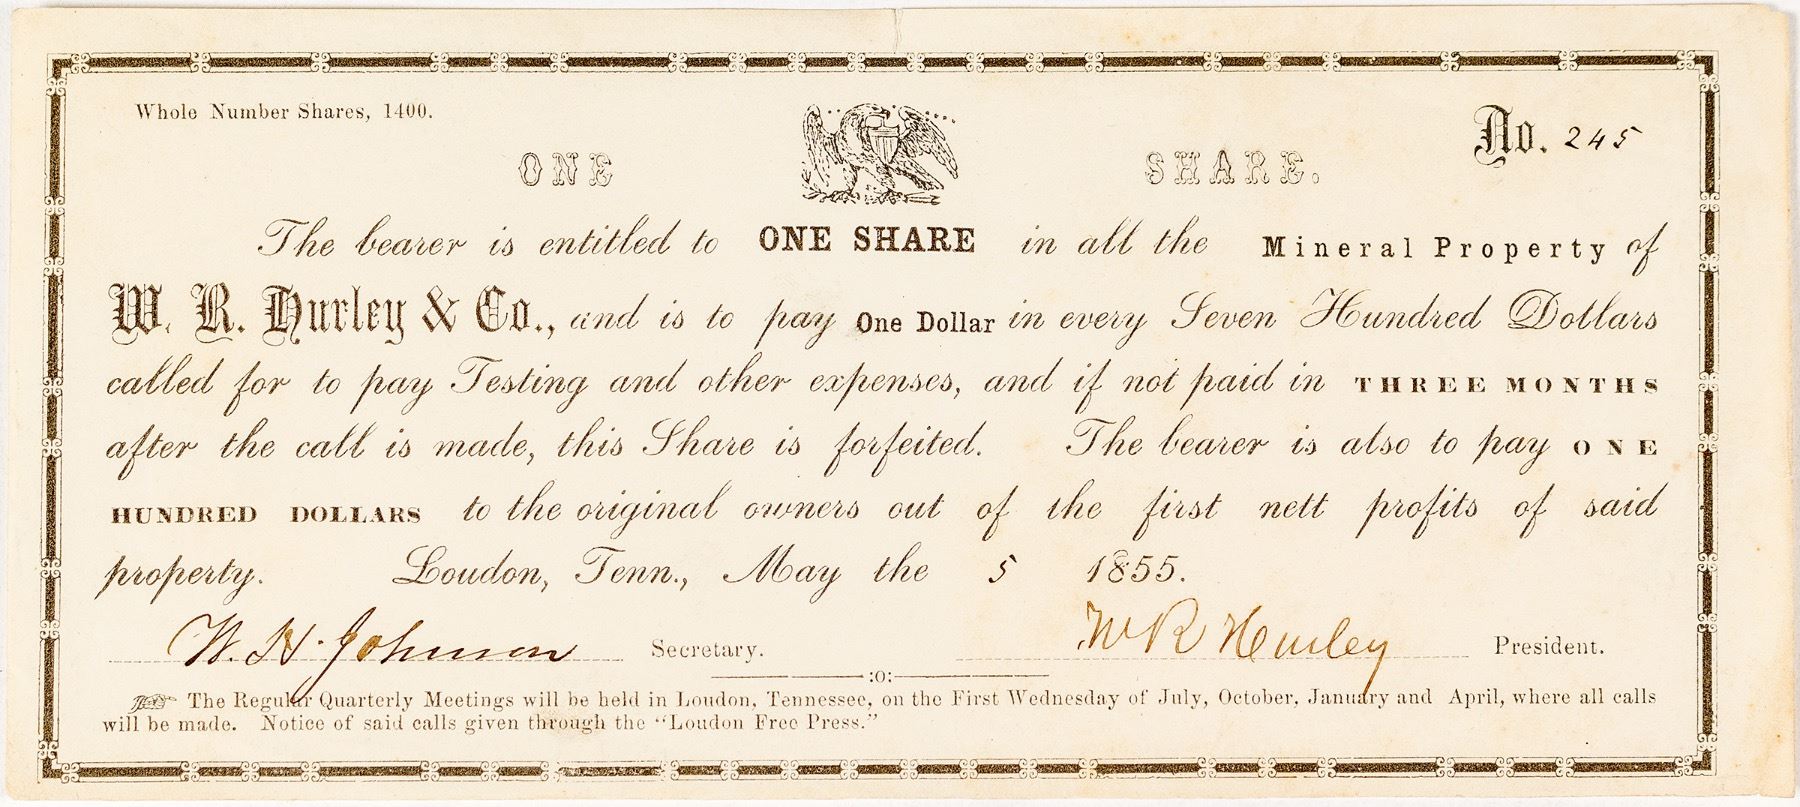 Whole Number Shares, 1400.
No. 245
ONE SHARE.
The bearer is entitled to ONE SHARE in all the Mineral Property of
W. R. Hurley & Co., and is to pay One Dollar in every Seven Hundred Dollars
called for to pay Testing and other expenses, and if not paid in THREE MONTHS
after the call is made, this Share is forfeited. The bearer is also to pay ONE
HUNDRED DOLLARS to the original owners out of the first nett profits of said
property. Loudon, Tenn., May the 5 1855.
W. H. Johnson Secretary. W R Hurley President.
:o:
The Regular Quarterly Meetings will be held in Loudon, Tennessee, on the First Wednesday of July, October, January and April, where all calls
will be made. Notice of said calls given through the "Loudon Free Press."